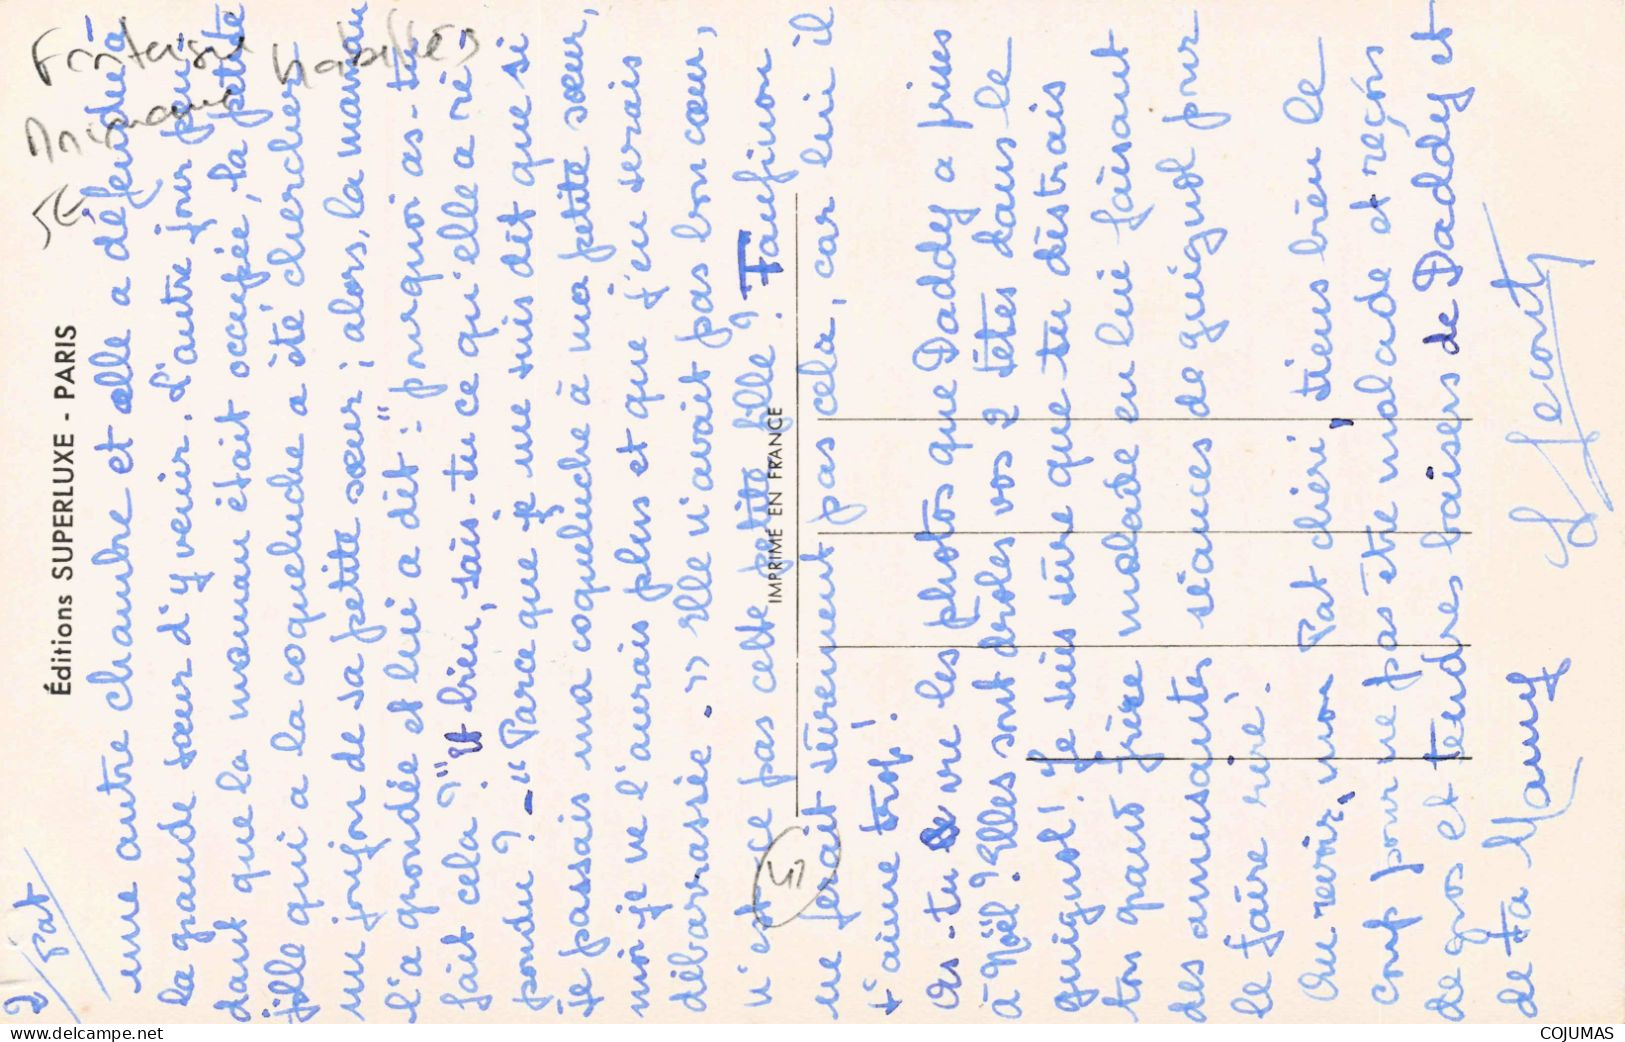 2/ Pat
une autre chambre et elle a défendu à
la grande sœur d'y venir. L'autre jour pen-
dant que la maman était occupée, la petite
fille qui a la coqueluche a été chercher
un jupon de sa petite sœur ; alors, la maman
l'a grondée et lui a dit : "pourquoi as-tu
fait cela ?" Et bien, sais-tu ce qu'elle a ré-
pondu ? - "Parce que je me suis dit que si
je passais ma coqueluche à ma petite sœur,
moi je ne l'aurais plus et que j'en serais
débarrassée. » Elle n'avait pas bon cœur,
n'est-ce pas cette petite fille ? Fanfinon
ne ferait sûrement pas cela, car lui il
t'aime trop !
As-tu vu les photos que Daddy a prises
à Noël ? Elles sont drôles vos 2 têtes dans le
guignol ! Je suis sûre que tu distrais
ton grand frère malade en lui faisant
des amusantes séances de guignol pour
le faire rire !
Au revoir, mon Pat chéri, tiens bien le
coup pour ne pas être malade et reçois
de gros et tendres baisers de Daddy et
de ta Mamy
Éditions SUPERLUXE - PARIS
IMPRIMÉ EN FRANCE
Fantaisie
Animaux habillés
5€
COJUMAS